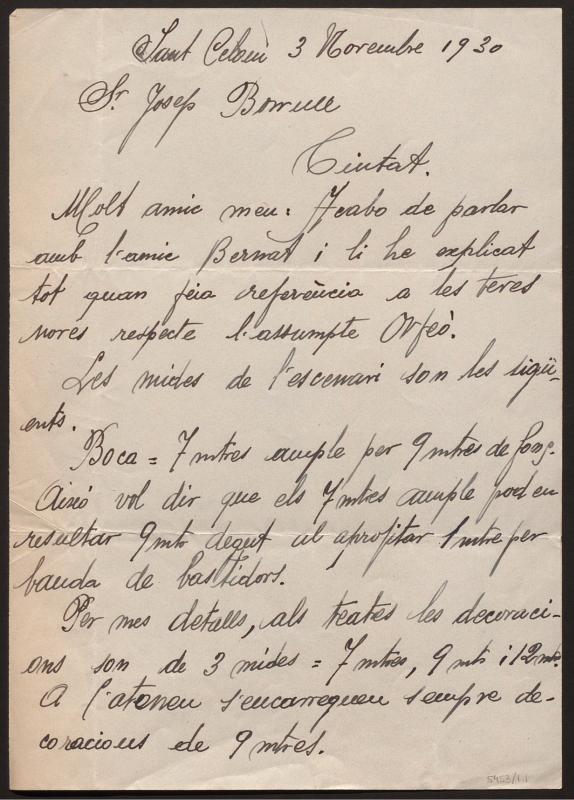 Sant Celoni 3 Novembre 1930
Sr Josep Borrull
Ciutat.
Molt amic meu: Acabo de parlar
amb l'amic Bernat i li he explicat
tot quan feia referència a les teves
nores respecte l'assumpte Orfeò.
Les mides de l'escenari son les sigü-
ents.
Boca = 7 mtres ample per 9 mtres de fons.
Aixó vol dir que els 7 mtres ample poden
resultar 9 mtr degut al aprofitar 1 mtre per
banda de bastidors.
Per mes detalls, als teatres les decoraci-
ons son de 3 mides = 7 mtres, 9 mtr i 12 mtr.
A l'ateneu s'encarreguen sempre de-
coracions de 9 mtres.
5453/1.1